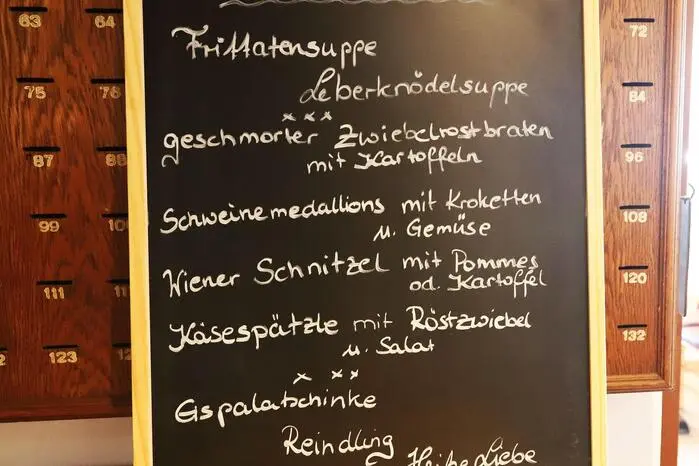 63
64
72
Frittatensuppe
Leberknödelsuppe
75
76
84
x x x
geschmorter Zwiebelrostbraten
mit Kartoffeln
87
88
96
Schweinemedallions mit Kroketten
u. Gemüse
99
108
Wiener Schnitzel mit Pommes
od. Kartoffel
111
120
Käsespätzle mit Röstzwiebel
u. Salat
123
132
x x x
Eispalatschinke
Reindling
Heiße Liebe